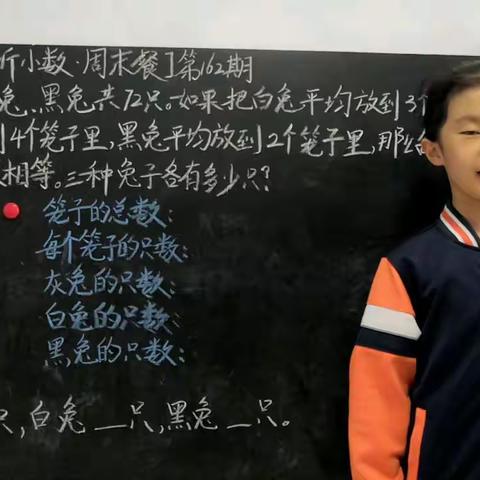 听小数·周末餐】第162期
兔、黑兔共72只。如果把白兔平均放到3个
4个笼子里,黑兔平均放到2个笼子里,那么
相等。三种兔子各有多少只?
笼子的总数:
每个笼子的只数:
灰兔的只数:
白兔的只数:
黑兔的只数:
只,白兔__只,黑兔__只。